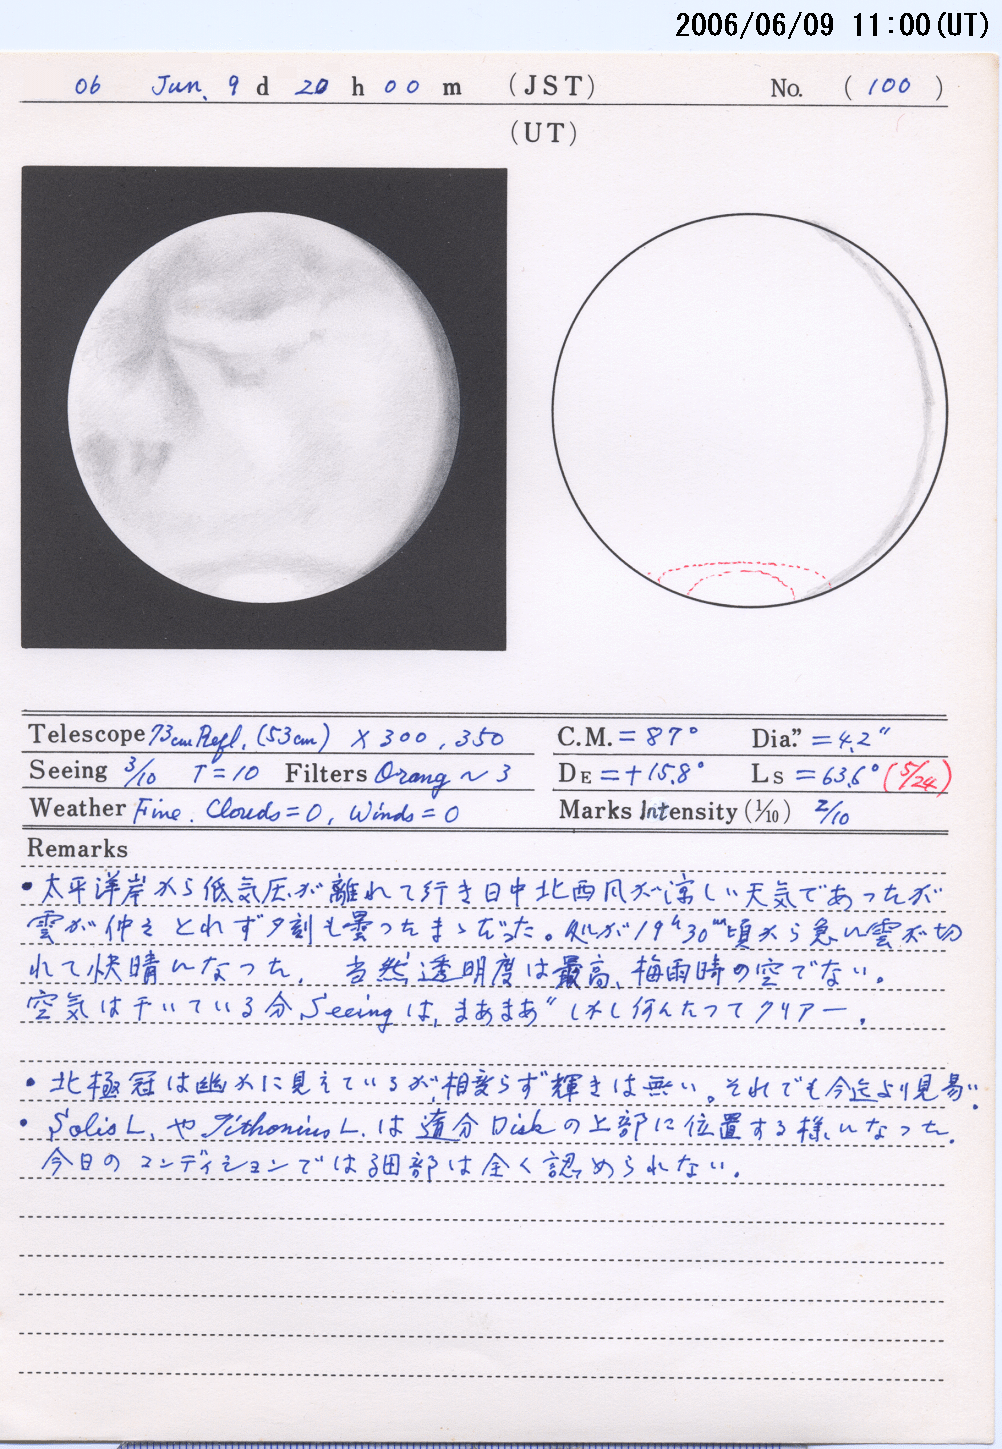 2006/06/09 11:00(UT)
06 Jun. 9 d 20 h 00 m (JST) No. (100)
(UT)
Telescope 73cm Refl. (53cm) × 300, 350 C.M. = 87° Dia." = 4.2"
Seeing 3/10 T = 10 Filters Orang ~ 3 DE = +15.8° Ls = 63.6° (5/24)
Weather Fine. Clouds = 0, Winds = 0 Marks Intensity (1/10) 2/10
Remarks
• 太平洋岸から低気圧が離れて行き日中北西風が涼しい天気であったが
雲が仲々とれず夕刻も曇ったまゝだった。処が19h30m頃から急に雲が切
れて快晴になった. 当然透明度は最高、梅雨時の空でない。
空気は干いている分、Seeingは, まあまあ" しかし何んたってクリアー.
• 北極冠は幽かに見えているが,相変らず輝きは無い。それでも今迄より見易い.
• Solis L. や Tithonius L. は随分Diskの上部に位置する様になった.
今日のコンディションでは細部は全く認められない.